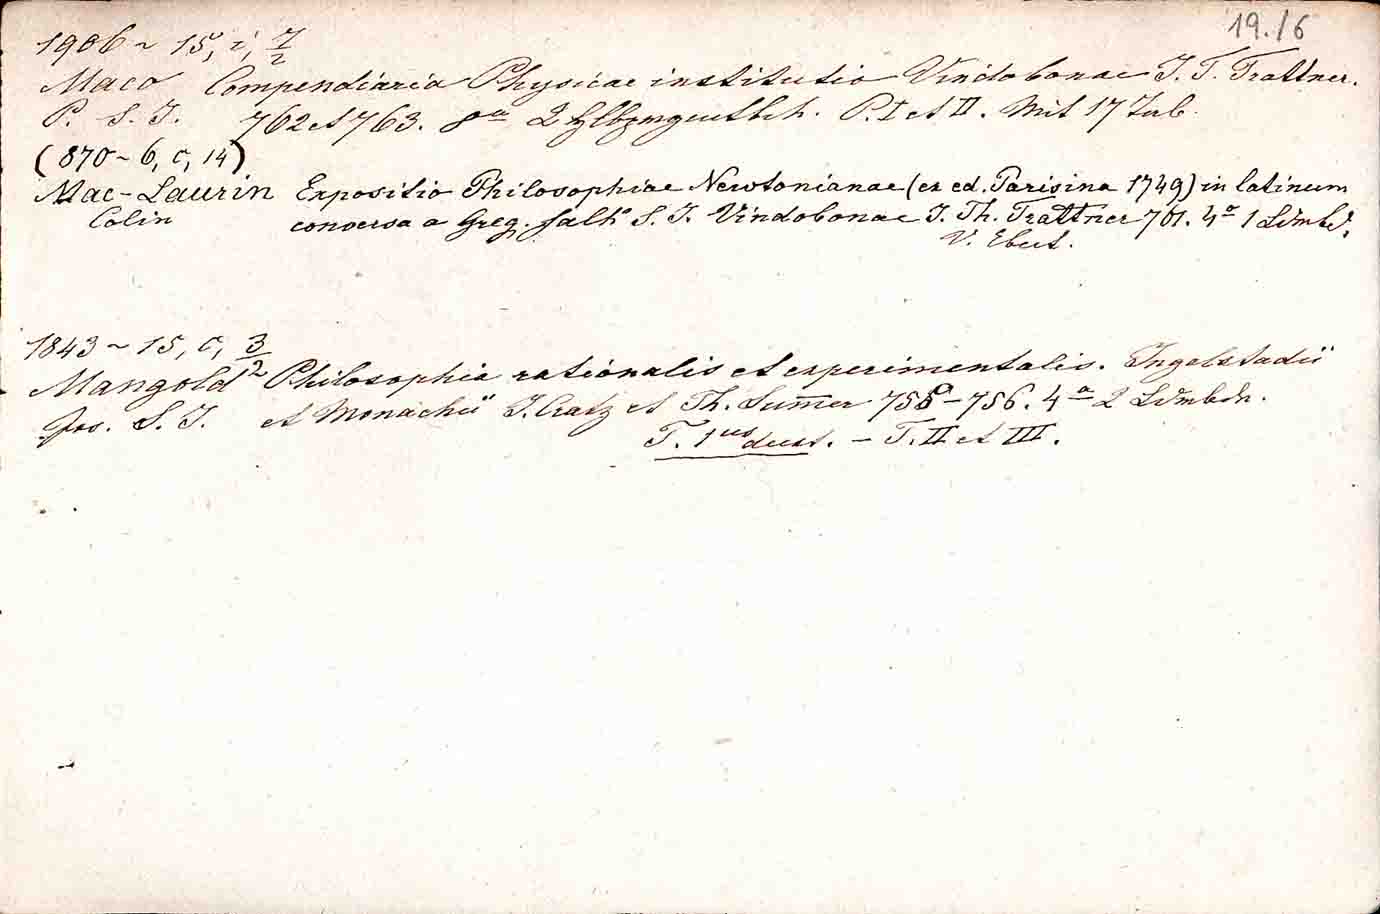 19./6
1906 ~ 15, i, 7/2
Maco Compendiaria Physicae institutio Vindobonae J. T. Trattner.
P. S. J. 762 et 763. 8° 2 P. I et II. Mit 17 Tab.
(870 ~ 6, c, 14)
Mac-Laurin Expositio Philosophiae Newtonianae (ex ed. Parisina 1749) in latinum
Colin conversa a Greg. Falk S. J. Vindobonae J. Th. Trattner 761. 4° 1
V. Ebert.
1843 ~ 15, c, 3/2
Mangold Philosophia rationalis et experimentalis. Ingolstadii
Jos. S. J. et Monachii J. Cratz et Th. Sum̄er 755-756. 4° 2
T. 1us deest. - T. II et III.